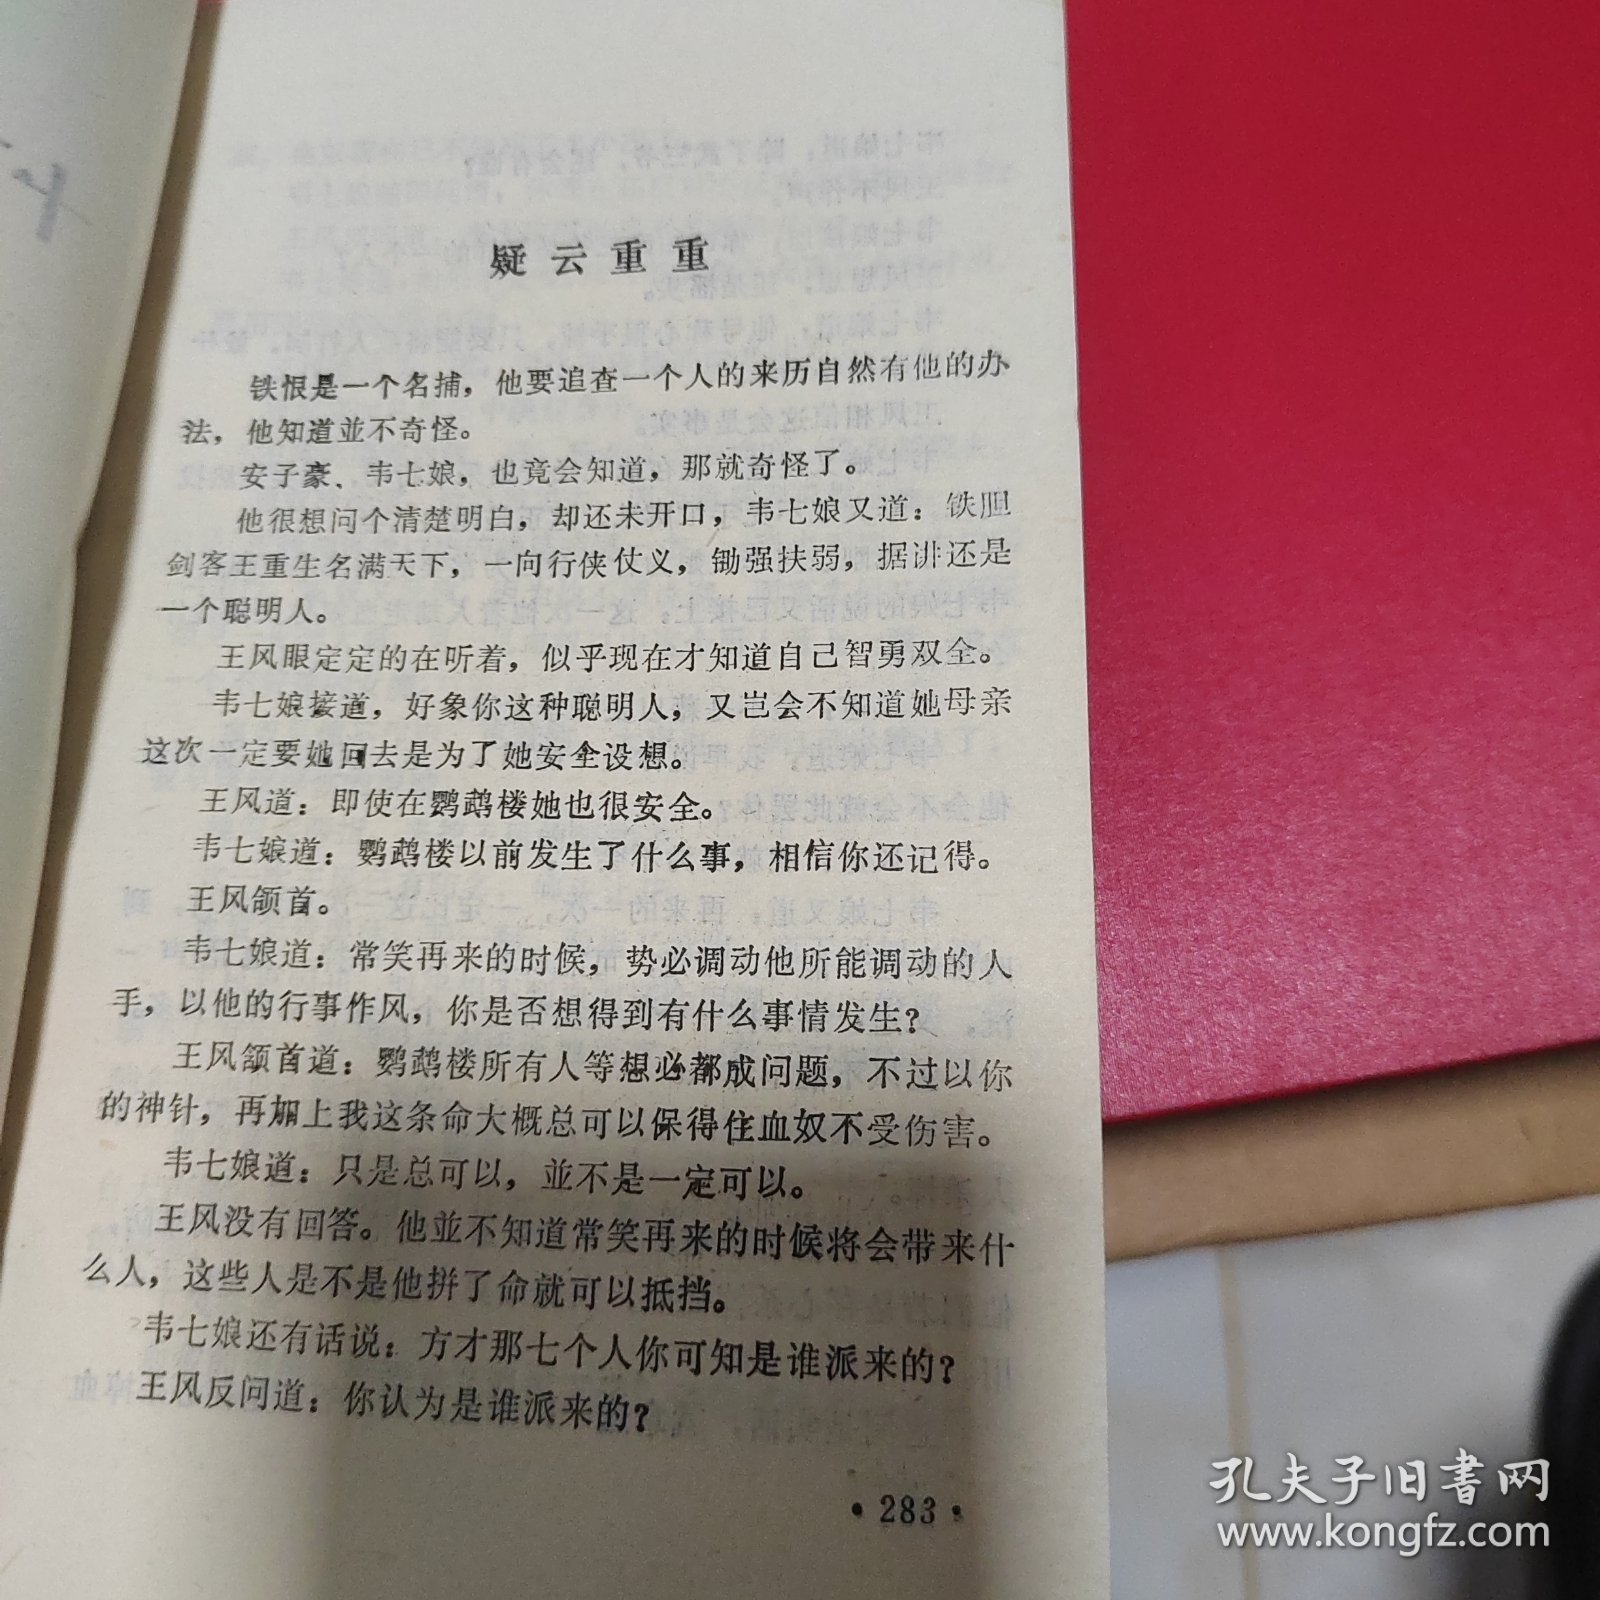 疑云重重
铁恨是一个名捕，他要追查一个人的来历自然有他的办
法，他知道並不奇怪。
安子豪、韦七娘，也竟会知道，那就奇怪了。
他很想问个清楚明白，却还未开口，韦七娘又道：铁胆
剑客王重生名满天下，一向行侠仗义，锄强扶弱，据讲还是
一个聪明人。
王风眼定定的在听着，似乎现在才知道自己智勇双全。
韦七娘接道，好象你这种聪明人，又岂会不知道她母亲
这次一定要她回去是为了她安全设想。
王风道：即使在鹦鹉楼她也很安全。
韦七娘道：鹦鹉楼以前发生了什么事，相信你还记得。
王风颔首。
韦七娘道：常笑再来的时候，势必调动他所能调动的人
手，以他的行事作风，你是否想得到有什么事情发生？
王风颔首道：鹦鹉楼所有人等想必都成问题，不过以你
的神针，再加上我这条命大概总可以保得住血奴不受伤害。
韦七娘道：只是总可以，並不是一定可以。
王风没有回答。他並不知道常笑再来的时候将会带来什
么人，这些人是不是他拼了命就可以抵挡。
韦七娘还有话说：方才那七个人你可知是谁派来的？
王风反问道：你认为是谁派来的？
·283·
孔夫子旧书网
www.kongfz.com